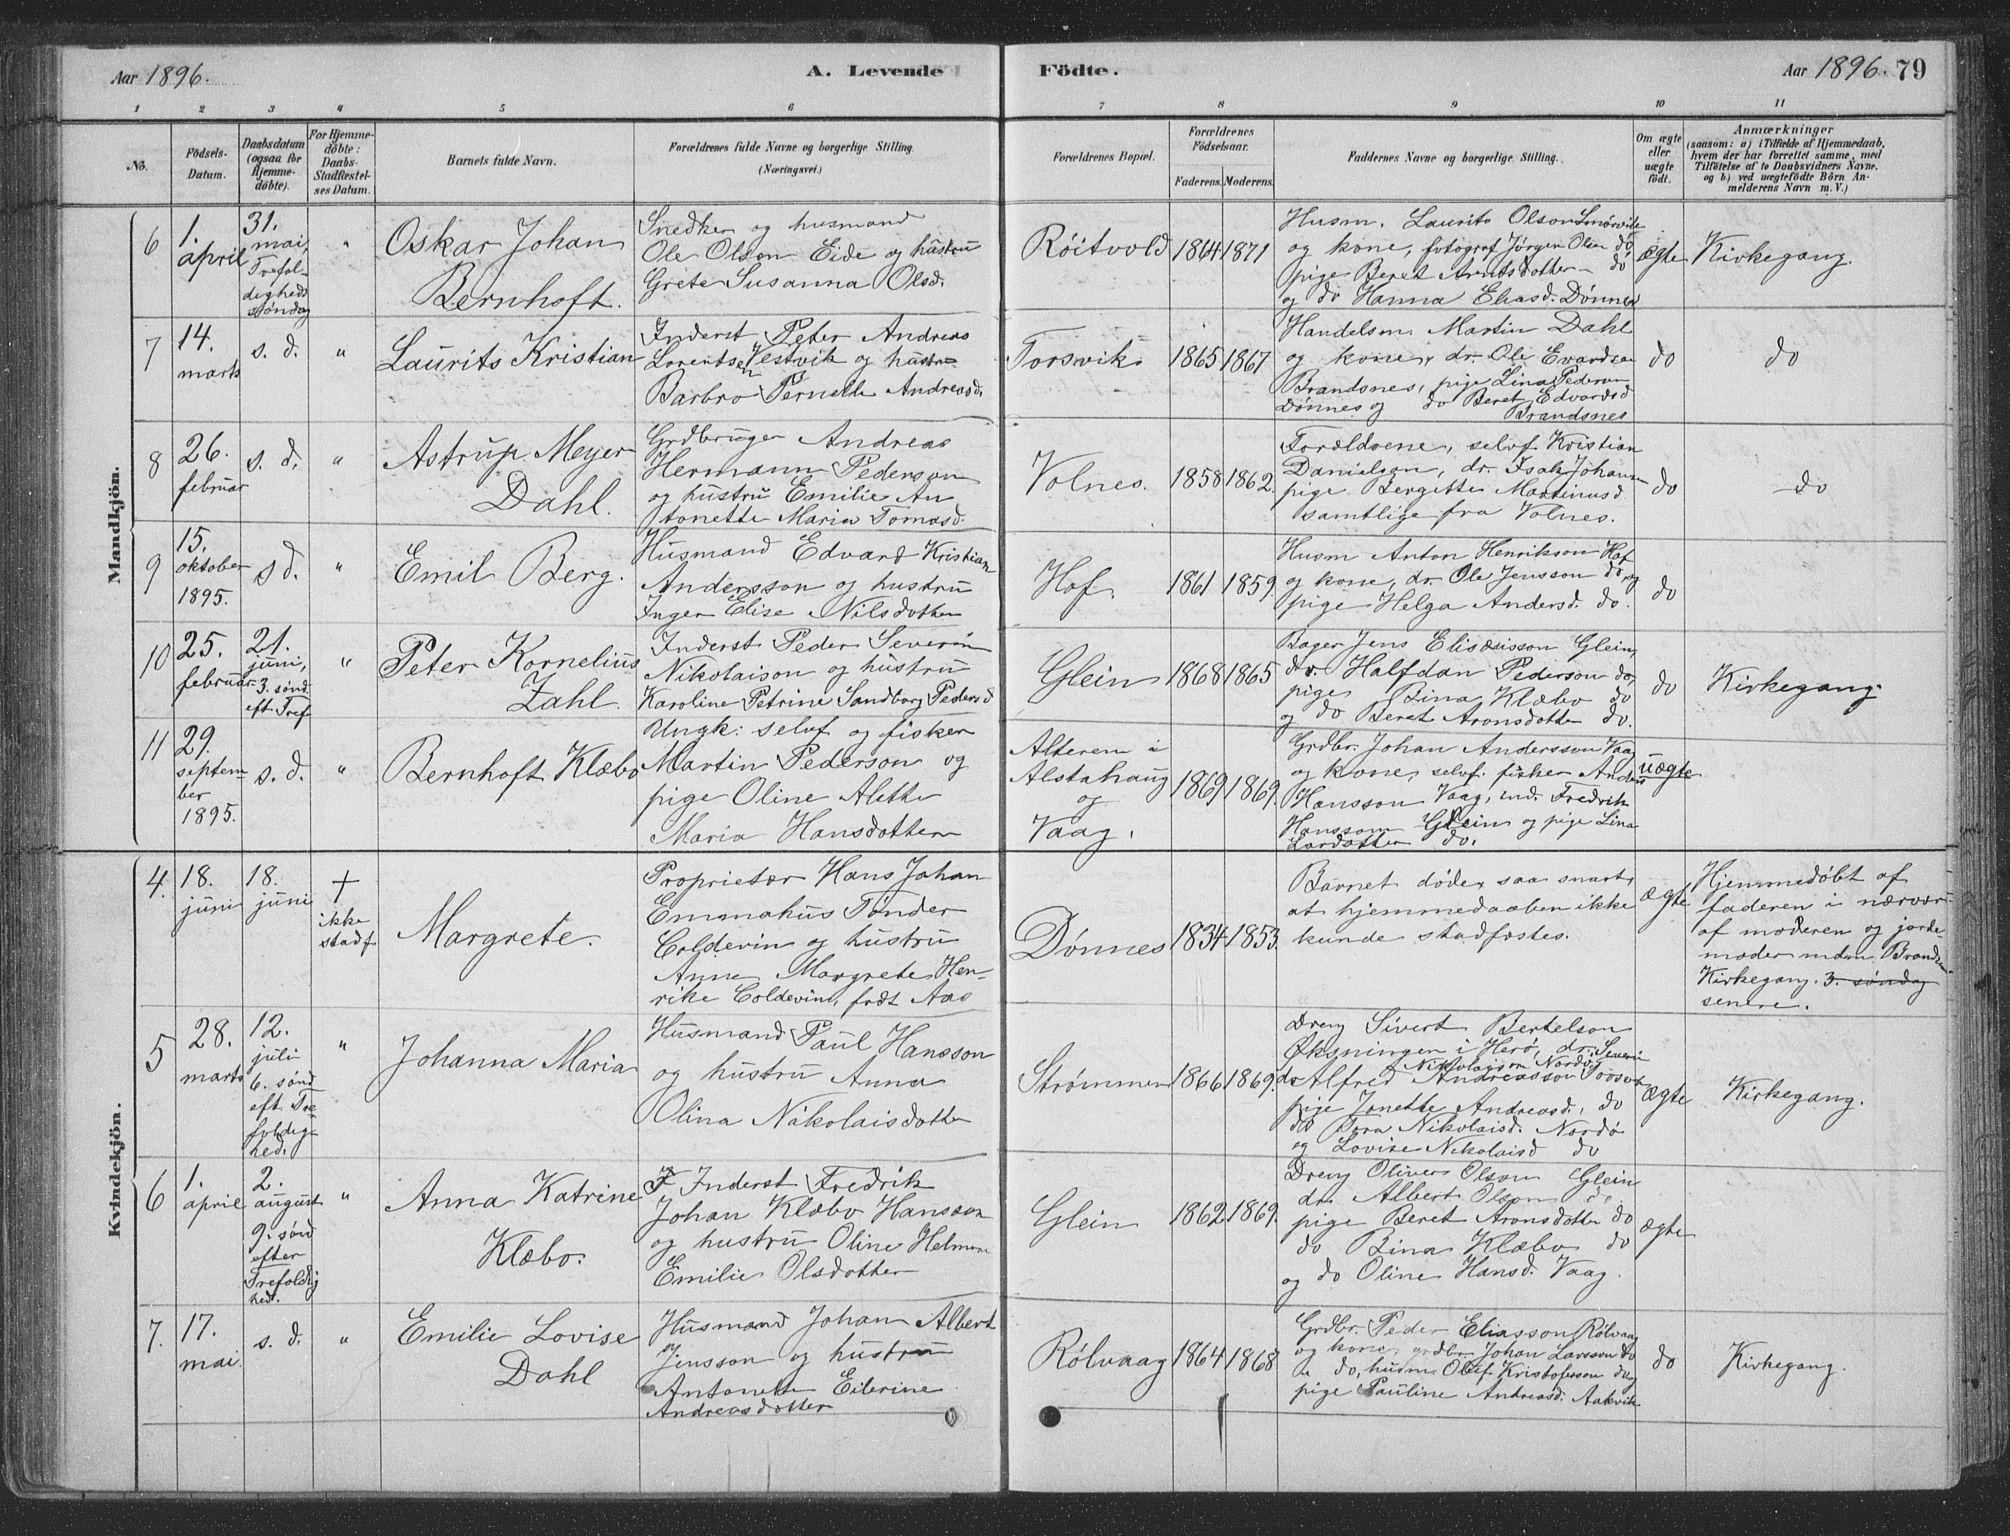 Aar 1896. A. Levende Födte. Aar 1896. 79
1 2 3 4 5 6 7 8 9 10 11
No.
Födsels-
Datum.
Daabsdatum
(ogsaa for
Hjemme-
döbte).
For Hjemme-
döbte:
Daabs-
Stadfæstel-
ses Datum.
Barnets fulde Navn.
Forældrenes fulde Navne og borgerlige Stilling
(Næringsvei.)
Forældrenes Bopæl.
Forældrenes
Födselsaar.
Faderens. Moderens.
Faddernes Navne og borgerlige Stilling.
Om ægte
eller
uægte
födt.
Anmærkninger
(saasom: a) i Tilfælde af Hjemmedaab,
hvem der har forrettet samme, med
Tilföielse af to Daabsvidners Navne,
og b) ved uægtefödte Börn An-
melderens Navn m. V.)
Mandkjön.
6
1.
april
31.
mai,
Trefol-
digheds
søndag
"
Oskar Johan
Bernhoft.
Snedker og husmand
Ole Olson Eide og hustru
Grete Susanna Olsd.
Röitvold
1864 1871
Husm. Laurits Olson Smørvik
og kone, fotograf Jørgen Olsen do
pige Beret Arntsdotter - do
og do Hanna Eliasd. Dønnes
ægte
Kirkegang.
7
14.
marts
s. d.
"
Laurits Kristian
Inderst Peter Andreas
Lorentsen Vestvik og hustru
Barbro Pernelle Andreasd.
Forsvik
1865 1867
Handelsm. Martin Dahl
og kone, dr. Ole Evardsen
Brandsnes, pige Lina Peders
Dønnes og do Beret Edvardsd
Brandsnes
do
do
8
26.
februar
s. d.
"
Astrup Meyer
Dahl.
Grdbruger Andreas
Hermann Pederson
og hustru Emilie An
tonette Maria Tomasd.
Volnes.
1858 1862.
Forældrene, selvf. Kristian
Danielson, dr. Isak Johans
pige Bergette Martinusd
samtlige fra Volnes.
do
do
9
15.
oktober
1895.
s d.
"
Emil Berg.
Husmand Edvard Kristian
Andersson og hustru
Inger Elise Nilsdotter
Hof.
1861 1859.
Husm Anton Henrikson Hof
og kone, dr. Ole Jensson do og
pige Helga Andersd. do.
do
10
25.
februar
21.
juni,
3. sønd.
eft. Tref.
"
Peter Kornelius
Zahl.
Inderst Peder Severin
Nikolaison og hustru
Karoline Petrine Sandborg Pedersd
Glein
1868 1865
Bager Jens Elisæisson Glein,
dr. Halfdan Pederson do,
pige Bina Klæbo do
og do Beret Aronsdotter do.
do
Kirkegang.
11
29.
septem
ber
1895.
s. d.
"
Bernhoft Klæbo
Ungk: selvf og fisker
Martin Pederson og
pige Oline Alette
Maria Hansdotter
Alteren i
Alstahaug
og
Vaag.
1869 1869.
Grdbr. Johan Andersson Vaag
og kone, selvf. fisker Anders
Hansson Vaag, ind. Fredrik
Hansson Glein og pige Lina
Larsdotter do.
uægte
Kvindekjön.
4.
18.
juni
18.
juni
†
ikke
stadf.
Margrete.
Proprietær Hans Johan
Emmahus Tønder
Coldevin og hustru
Anne Margrete Hen-
rike Coldevin, født Aas
Dønnes
1834 1853.
Barnet døde, saa snart,
at hjemmedaaben ikke
kunde stadfæstes.
ægte
Hjemmedøbt af
faderen i nærvær
af moderen og jorde-
moder mdm. Brands
Kirkegang. 3. søndag
senere.
5
28.
marts
12.
juli
6. sønd
eft. Tre-
foldig-
hed.
"
Johanna Maria
Husmand Paul Hansson
og hustru Anna
Olina Nikolaisdotter
Strømmen
1866 1869.
Dreng Sivert Bertelson
Øksningen i Herø, dr. Severin
Nikolaison Nordø
do Alfred Andreasson
pige Jonette Andreasd., do
do Dora Nikolaisd. Nordø
og Lovise Nikolaisd do
ægte
Kirkegang.
6
1.
april
2.
august
9. sønd
efter
Trefoldig
hed.
"
Anna Katrine
Klæbo.
F Inderst Fredrik
Johan Klæbo Hansson
og hustru Oline Helmine
Emilie Olsdotter
Glein
1862 1869.
Dreng Oliver Olson Glein
dr. Albert Olson do,
pige Beret Aronsdotter do
do Bina Klæbo do
og do Oline Hansd. Vaag.
ægte
7.
17.
mai.
s. d.
"
Emilie Lovise
Dahl
Husmand Johan Albert
Jensson og hustru
Antonette Eilerine
Andreasdotter
Rølvaag
1864 1868
Grdbr. Peder Eliasson Rølvaag
og kone, grdbr. Johan Larsson do
do, husm. Oluf Kristofferson do og
pige Pauline Andreasd. Aakvik
do
Kirkegang.